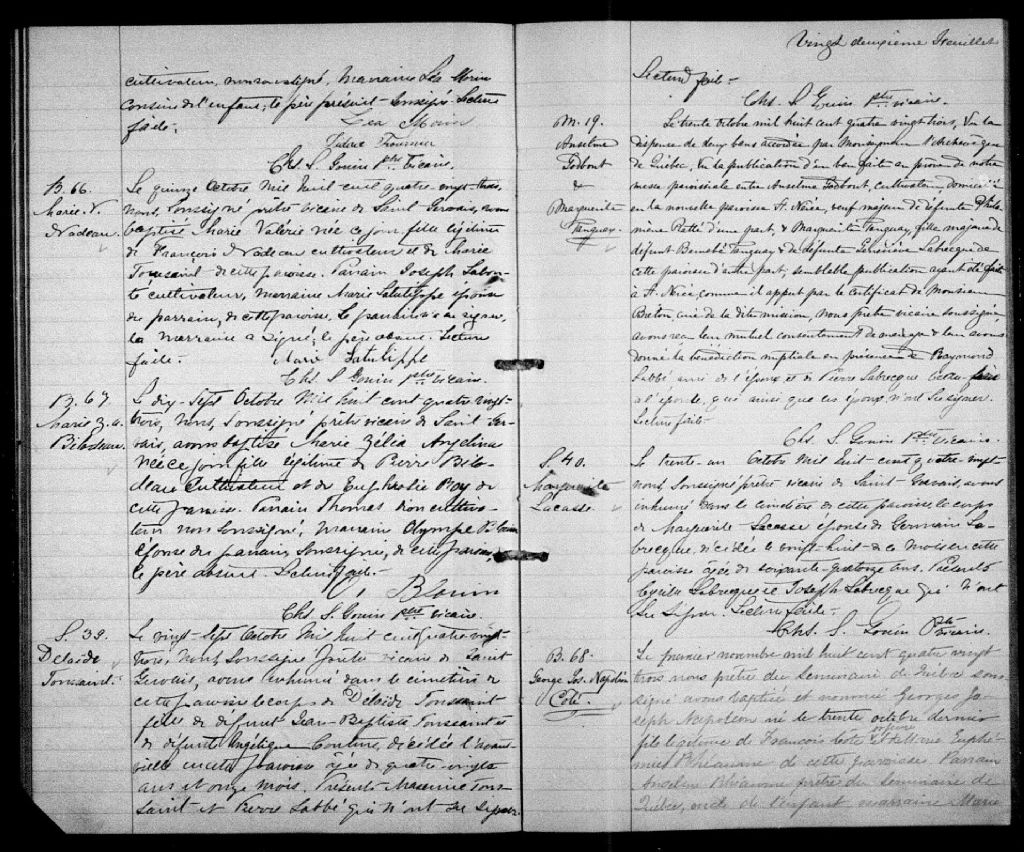 cultivateur, non soussigné, Marraine Léa Morin
cousine de l'enfant; le père présent soussigné. Lecture
faite.
Léa Morin
Fournier
Chs. S. Gouin ptre vicaire.
B. 66.
Marie V.
Nadeau.
Le quinze Octobre Mil huit cent quatre-vingt-trois,
nous, soussigné prêtre vicaire de Saint Gervais, avons
baptisé Marie Valérie née ce jour fille légitime
de François Nadeau cultivateur et de Marie
Toussaint de cette paroisse. Parrain Joseph
cultivateur, marraine Marie Latulippe épouse
du parrain, de cette paroisse. Le parrain n'a su signer,
la marraine a signé; le père absent. Lecture
faite. Marie Latulippe
Chs. S Gouin ptre vicaire.
B. 67.
Marie Z. A.
Bilodeau.
Le dix-sept Octobre Mil huit cent quatre vingt-
trois, Nous, soussigné prêtre vicaire de Saint Ger-
vais, avons baptisé Marie Zélia Angelina
née ce jour fille légitime de Pierre Bilo-
deau cultivateur et de Euphrosie Roy de
cette paroisse. Parrain Thomas
non soussigné, marraine Olympe
épouse du parrain, soussignée, de cette paroisse,
le père absent. Lecture faite.
Blouin
Chs. S Gouin ptre vicaire.
S. 39.
Délaïde
Toussaint.
Le vingt-sept Octobre Mil huit cent quatre-vingt-
trois, Nous, soussigné prêtre vicaire de Saint
Gervais, avons inhumé dans le cimetière de
cette paroisse le corps de Délaïde Toussaint
fille de défunt Jean-Baptiste Toussaint et
de défunte Angélique Couture, décédée l'avant
veille en cette paroisse âgée de quatre-vingts
ans et onze mois. Présents Maxime Tous-
saint et Pierre Labbé qui n'ont su signer.
Vingt deuxième feuillet
Lecture faite.
Chs. S Gouin ptre vicaire.
M. 19.
Anselme
Godbout
&
Marguerite
Tanguay.
Le trente Octobre mil huit cent quatre vingt trois, Vu la
dispense de deux bans accordée par Monseigneur l'Archevêque
de Québec, Vu la publication d'un ban faite au prône de notre
messe paroissiale entre Anselme Godbout, cultivateur domicilié
en la nouvelle paroisse St. Nérée, veuf majeur de défunte Philo-
mène d'une part, & Marguerite Tanguay, fille majeure de
défunt Tanguay & de défunte Labrecque de
cette paroisse d'autre part, semblable publication ayant été faite
à St. Nérée, comme il appert par le certificat de Monsieur
Breton curé de la dite mission, nous prêtre vicaire soussigné
avons reçu leur mutuel consentement de mariage & leur avons
donné la bénédiction nuptiale en présence de Raymond
Labbé ami de l'époux et de Pierre Labrecque
à l'épouse, qui ainsi que les époux n'ont su signer.
Lecture faite.
Chs. S. Gouin Ptre Vicaire.
S. 40.
Marguerite
Lacasse.
Le trente-un Octobre Mil huit-cent quatre-vingt-
nous, soussigné prêtre vicaire de Saint-Gervais, avons
inhumé dans le cimetière de cette paroisse le corps
de Marguerite Lacasse épouse de Germain La-
brecque, décédée le vingt-huit de ce mois en cette
paroisse âgée de soixante-quatorze ans. Présents
Cyrille Labrecque et Joseph Labrecque qui n'ont
su signer. Lecture faite.
Chs. S. Gouin Ptre vicaire.
B. 68.
George Jos. Napoléon
Coté.
Le premier novembre mil huit cent quatre vingt
trois nous prêtre du Séminaire de Québec sous-
signé avons baptisé et nommé Georges Jo-
seph Napoléon né le trente octobre dernier
fils légitime de François Coté et de Euphé-
mie Rhéaume de cette paroisse. Parrain
Anselme Rhéaume prêtre du Séminaire de
Québec, oncle de l'enfant marraine Marie